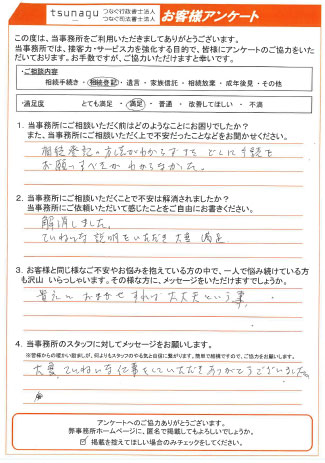 tsunagu つなぐ行政書士法人
つなぐ司法書士法人
お客様アンケート
この度は、当事務所をご利用いただきましてありがとうございます。
当事務所では、接客力・サービス力を強化する目的で、皆様にアンケートのご協力をいただいております。お手数ですが、ご協力いただけますと幸いです。
・ご相談内容
相続手続き・相続登記・遺言・家族信託・相続放棄・成年後見・その他
・満足度
とても満足・満足・普通・改善してほしい・不満
1. 当事務所にご相談いただく前はどのようなことにお困りでしたか?
また、当事務所にご相談いただく上で不安だったことなどをお聞かせください。
相続登記の方法がわからず どこに手続を
お願いすべきかわからなかった。
2. 当事務所にご相談いただくことで不安は解消されましたか?
当事務所にご依頼いただいて感じたことをご自由にお書きください。
解消しました。
ていねいな説明をいただき大変満足
3. お客様と同じ様なご不安やお悩みを抱えている方の中で、一人で悩み続けている方
も沢山いらっしゃいます。その様な方に、メッセージをいただけますでしょうか。
おまかせすれば大丈夫という事
4. 当事務所のスタッフに対してメッセージをお願いします。
※皆様からの暖かい励ましが、何よりもスタッフのやる気と自信に繋がります。簡単で結構ですので、ご協力をお願いします。
大変、ていねいな仕事をしていただきありがとうございました。
アンケートへのご協力ありがとうございます。
弊事務所ホームページに、匿名で掲載してもよろしいでしょうか。
掲載を控えてほしい場合のみチェックをしてください。